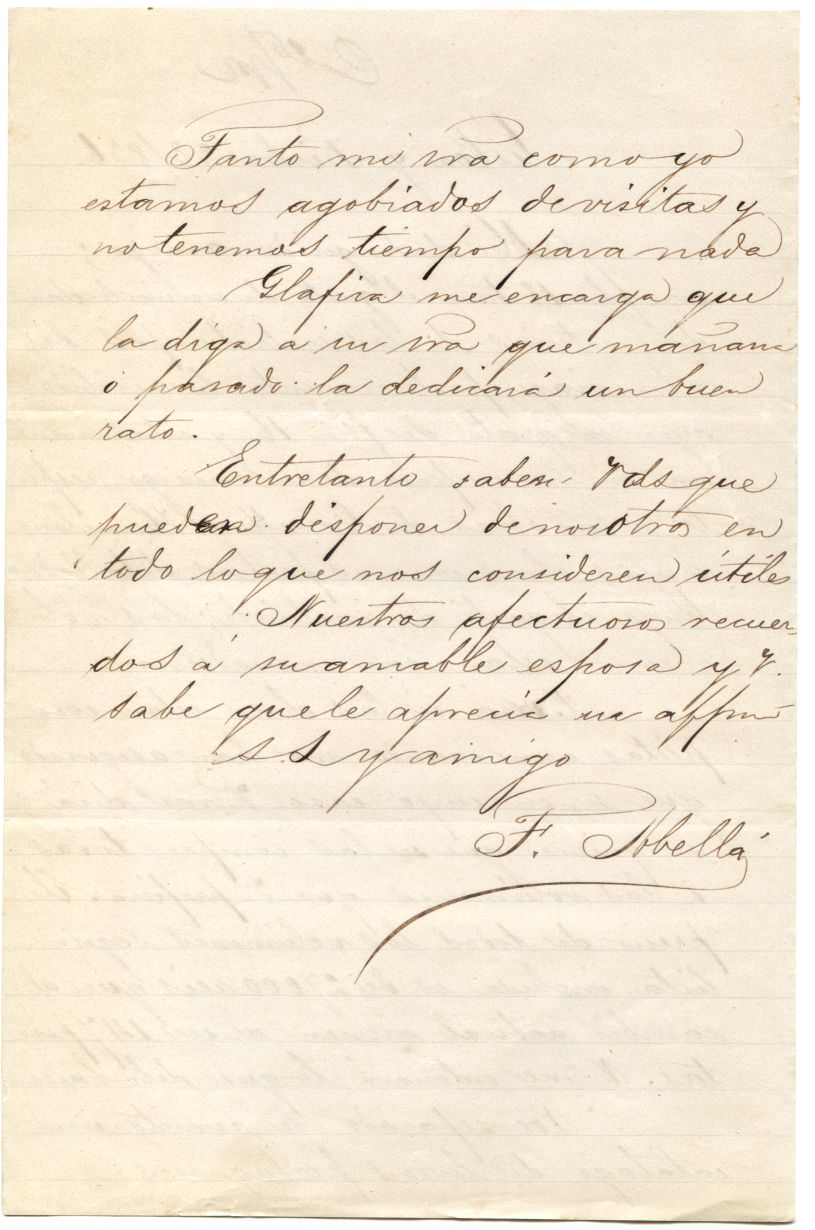 Tanto mi sra como yo
estamos agobiados de visitas y
no tenemos tiempo para nada
Glafira me encarga que
la diga a su sra que mañana
ó pasado la dedicará un buen
rato.
Entretanto saben Vds que
pueden disponer de nosotros en
todo lo que nos consideren útiles
Nuestros afectuosos recuer-
dos á su amable esposa y V.
sabe que le aprecia su affmo
S. S. y amigo
F. Abellá